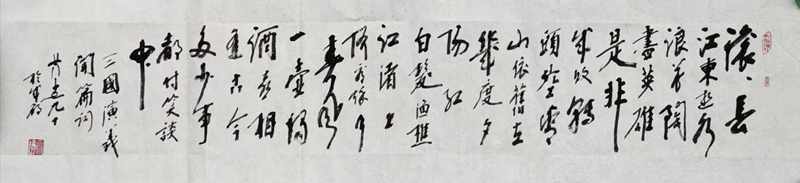 滚、长
江東逝水
浪花陶
盡英雄
是非
成敗轉
頭空青
山依舊在
幾度夕
陽紅
白髮渔樵
江渚上
慣看秋月
春風
一壺濁
酒喜相
逢古今
多少事
都付笑談
中
三國演義
開篇词